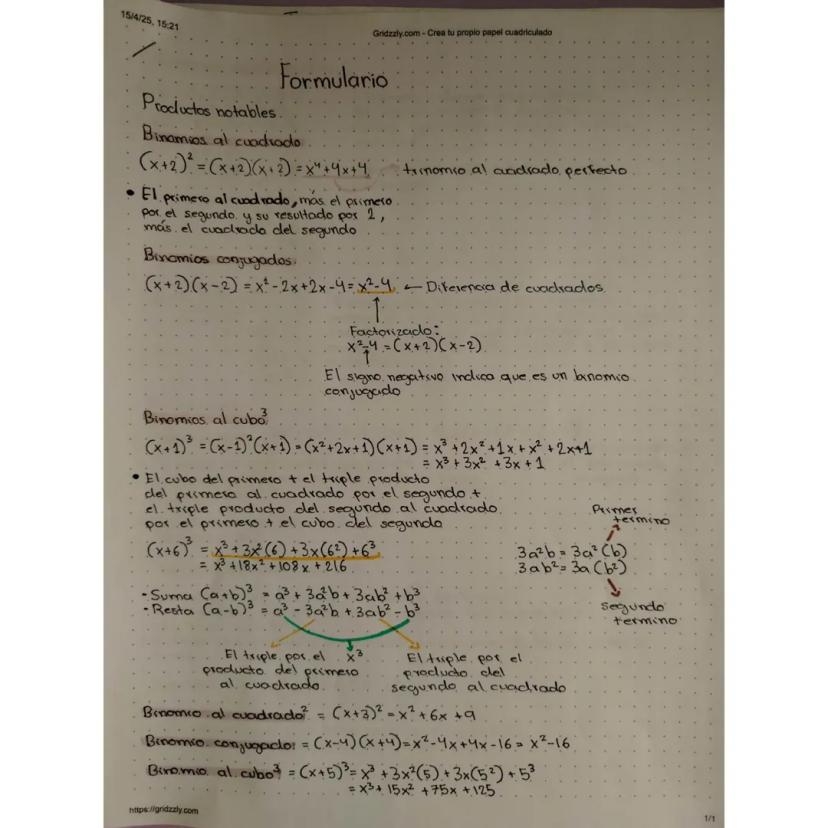 15/4/25, 15:21
Gridzzly.com - Crea tu propio papel cuadriculado
Formulario
Productos notables
Binomios al cuadrado
(x+2)² = (x+2)(x+2) = x⁴+4x+4 trinomio al cuadrado perfecto
• El primero al cuadrado, más el primero
por el segundo y su resultado por 2,
más el cuadrado del segundo
Binomios conjugados
(x+2)(x-2) = x²-2x+2x-4 = x²-4 ← Diferencia de cuadrados
Factorizado:
x²-4 = (x+2)(x-2)
El signo negativo indica que es un binomio
conjugado
Binomios al cubo³
(x+1)³ = (x-1)²(x+1) = (x²+2x+1)(x+1) = x³+2x²+1x+x²+2x+1
= x³+3x²+3x+1
• El cubo del primero + el triple producto
del primero al cuadrado por el segundo +
el triple producto del segundo al cuadrado
por el primero + el cubo del segundo
(x+6)³ = x³+3x²(6)+3x(6²)+6³
= x³+18x²+108x+216
Primer
termino
3a²b = 3a²(b)
3ab² = 3a(b²)
Segundo
termino
- Suma (a+b)³ = a³+3a²b+3ab²+b³
- Resta (a-b)³ = a³-3a²b+3ab²-b³
El triple por el
producto del primero
al cuadrado
x³
El triple por el
producto del
segundo al cuadrado
Binomio al cuadrado² = (x+3)² = x²+6x+9
Binomio conjugado: = (x-4)(x+4) = x²-4x+4x-16 = x²-16
Binomio al cubo³ = (x+5)³ = x³+3x²(5)+3x(5²)+5³
= x³+15x²+75x+125
https://gridzzly.com
1/1